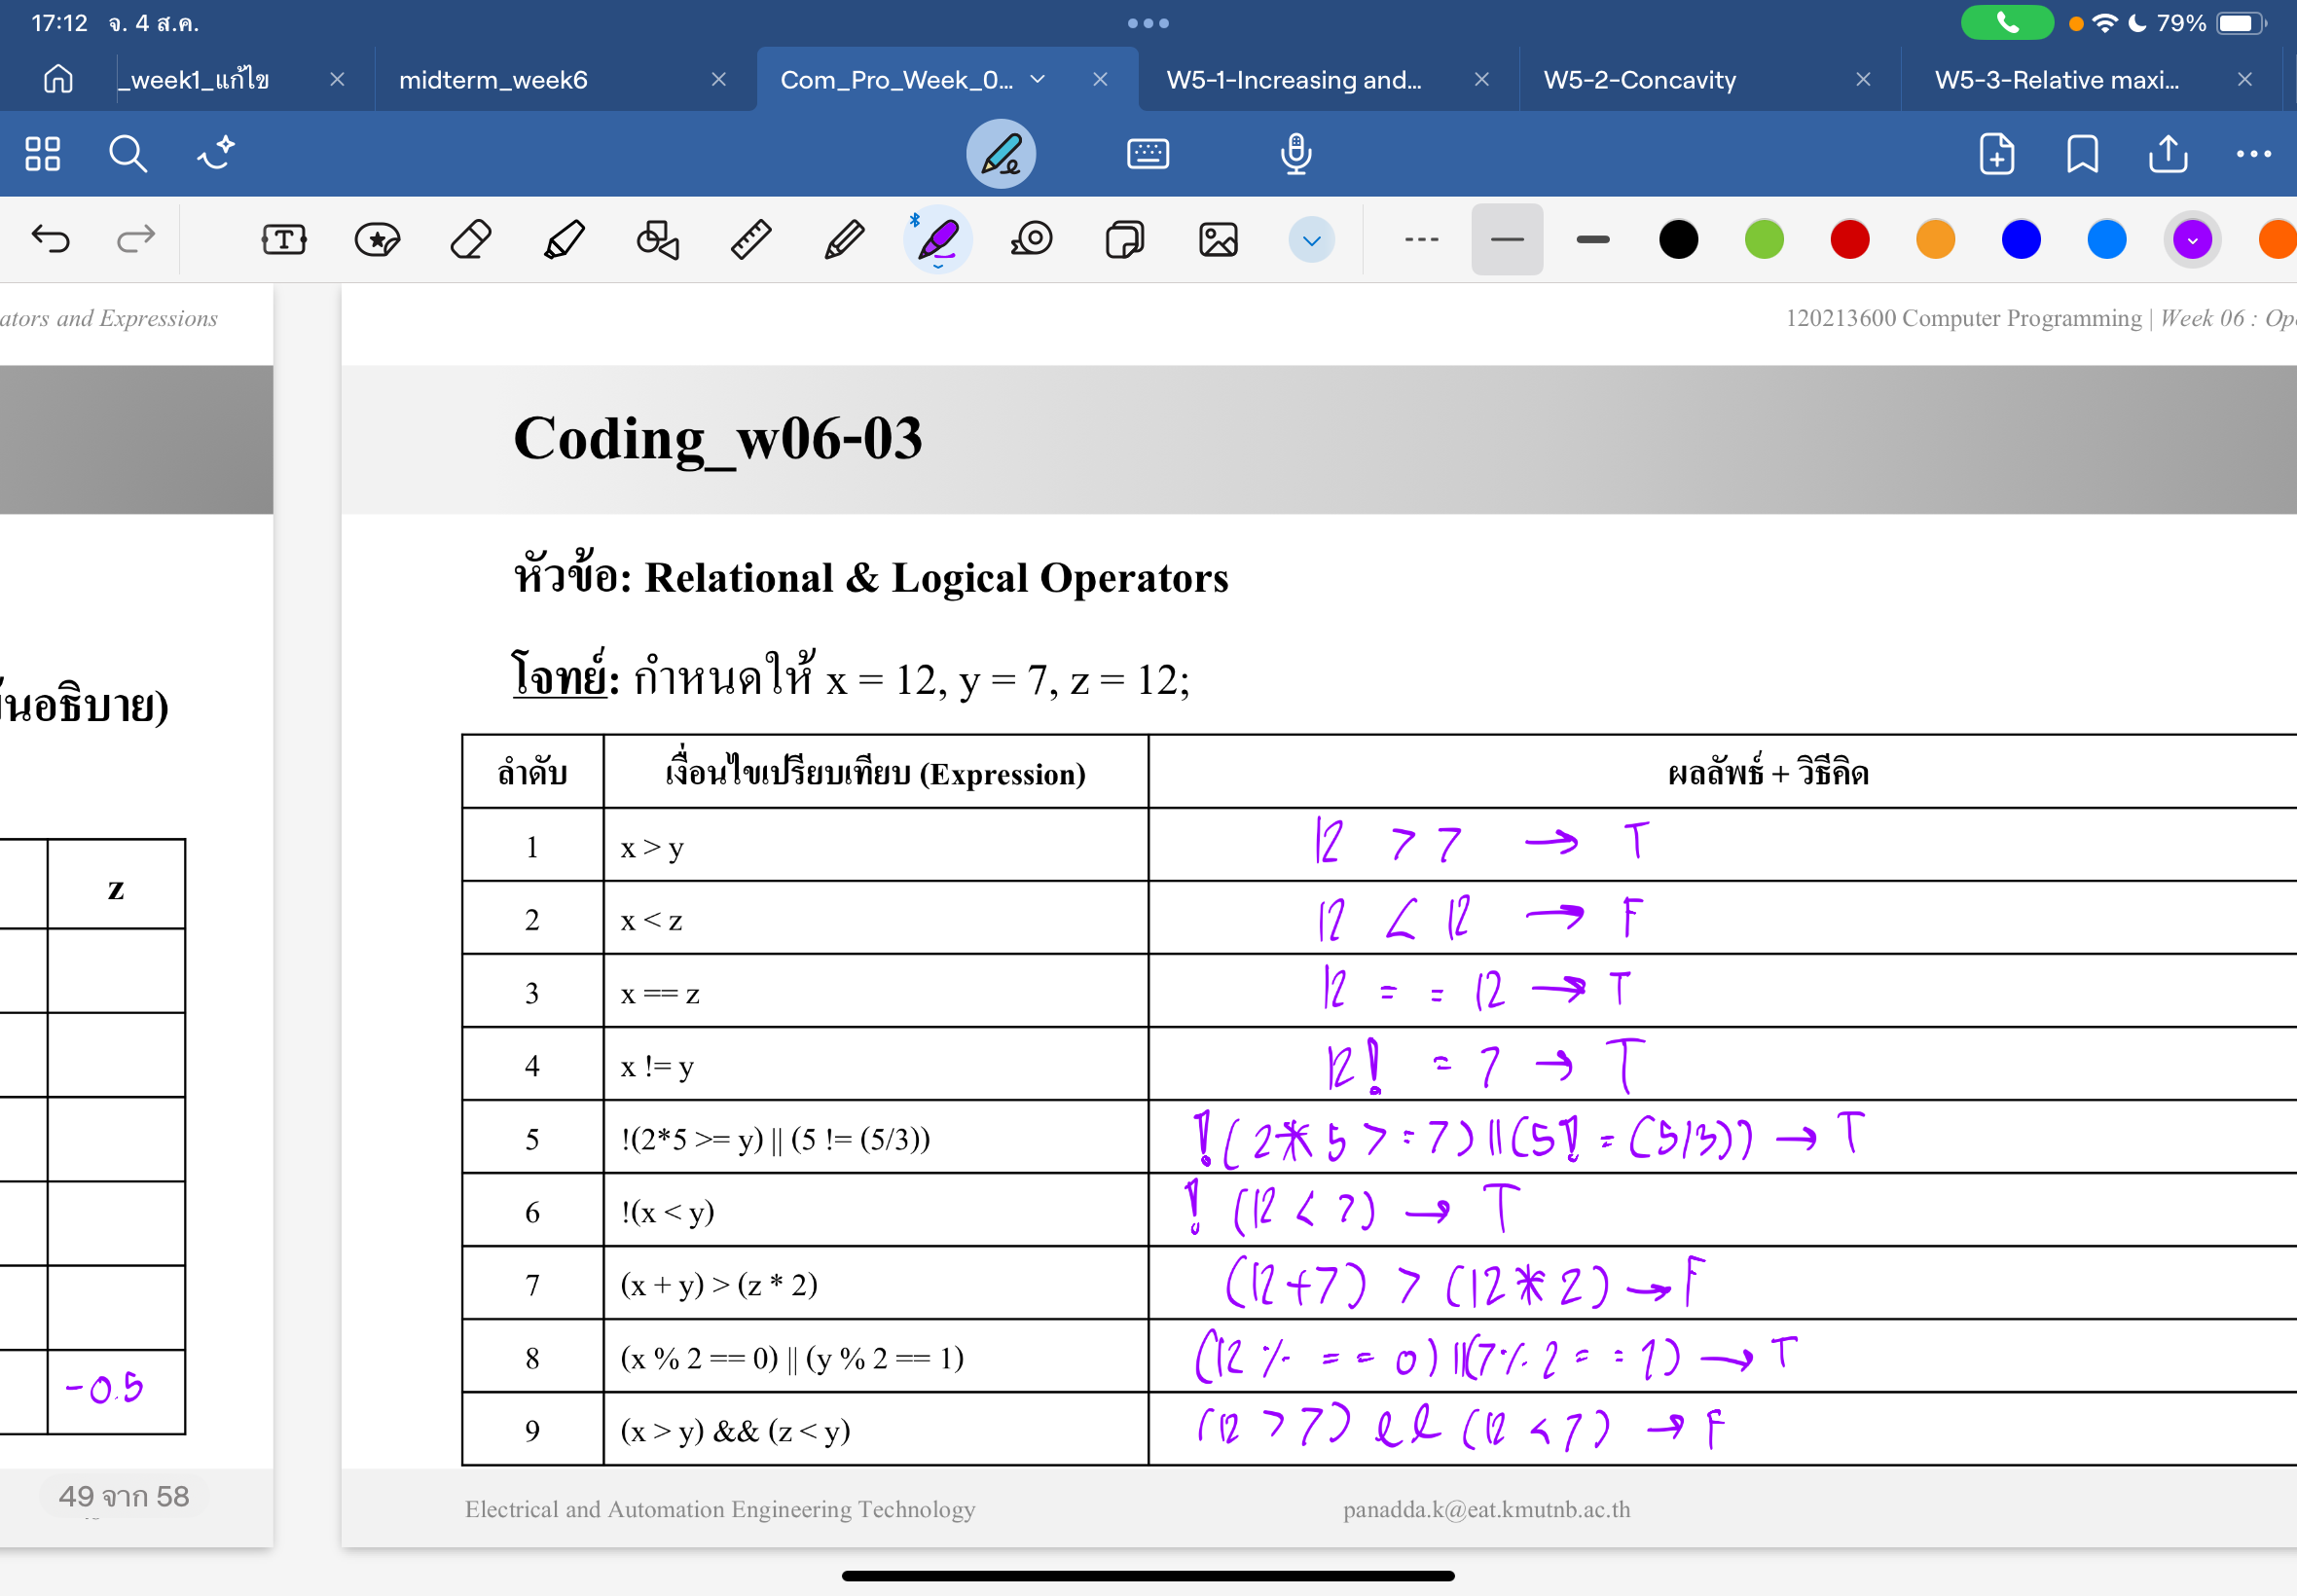 17:12 จ. 4 ส.ค. 79%
_week1_แก้ไข midterm_week6 Com_Pro_Week_0... W5-1-Increasing and... W5-2-Concavity W5-3-Relative maxi...
ators and Expressions
นอธิบาย)
z
-0.5
49 จาก 58
120213600 Computer Programming | Week 06 : Op
Coding_w06-03
หัวข้อ: Relational & Logical Operators
โจทย์: กำหนดให้ x = 12, y = 7, z = 12;
ลำดับ เงื่อนไขเปรียบเทียบ (Expression) ผลลัพธ์ + วิธีคิด
1 x > y 12 > 7 → T
2 x < z 12 < 12 → F
3 x == z 12 = = 12 → T
4 x != y 12 ! = 7 → T
5 !(2*5 >= y) || (5 != (5/3)) !(2*5 >=7)||(5!=(5/3)) → T
6 !(x < y) ! (12 < 7) → T
7 (x + y) > (z * 2) (12+7) > (12*2) → F
8 (x % 2 == 0) || (y % 2 == 1) (12 % == 0)||(7%2==1) → T
9 (x > y) && (z < y) (12 >7) && (12 <7) → F
Electrical and Automation Engineering Technology panadda.k@eat.kmutnb.ac.th